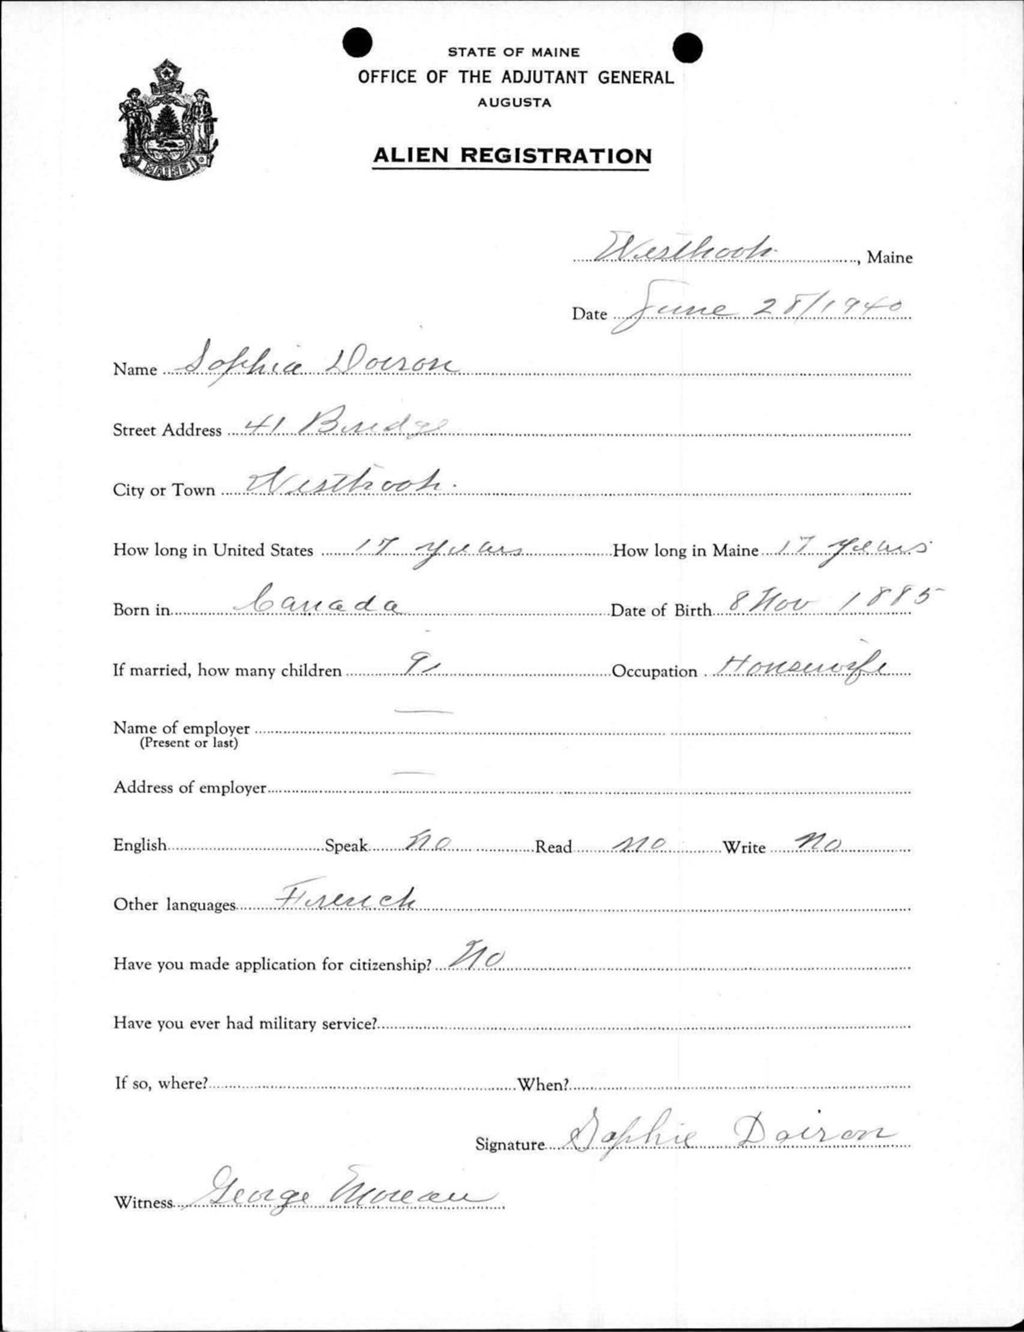 STATE OF MAINE
OFFICE OF THE ADJUTANT GENERAL
AUGUSTA
ALIEN REGISTRATION
MAINE
Westbrook, Maine
Date June 28/1940
Name Sophia Doiron
Street Address 41 Bridge
City or Town Westbrook.
How long in United States 17 years How long in Maine 17 years
Born in Canada Date of Birth 8 Nov 1885
If married, how many children 9 Occupation Housewife
Name of employer —
(Present or last)
Address of employer —
English Speak no Read no Write no
Other languages French
Have you made application for citizenship? No
Have you ever had military service?
If so, where? When?
Signature Sophie Doiron
Witness George Moreau